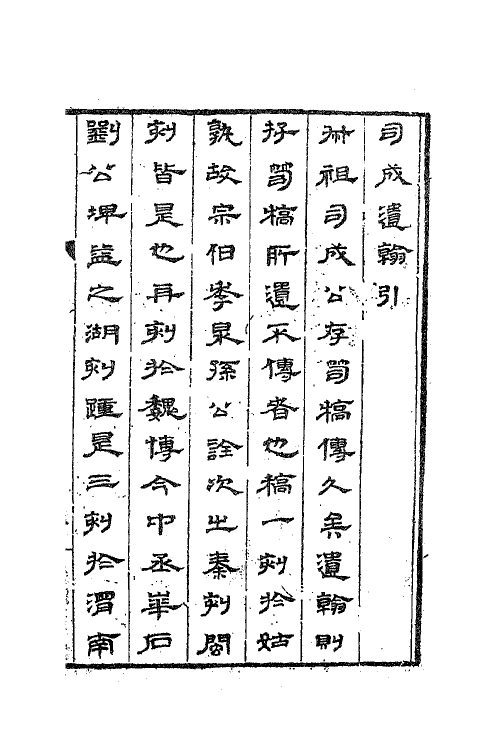 司成遺翰引
祖司成公存笥稿傳久矣遺翰則
存笥稿所遺不傳者也稿一刻於姑
孰故宗伯季泉孫公詮次之秦刻閩
刻皆是也再刻於魏博今中丞華石
劉公埤益之湖刻踵是三刻於渭南